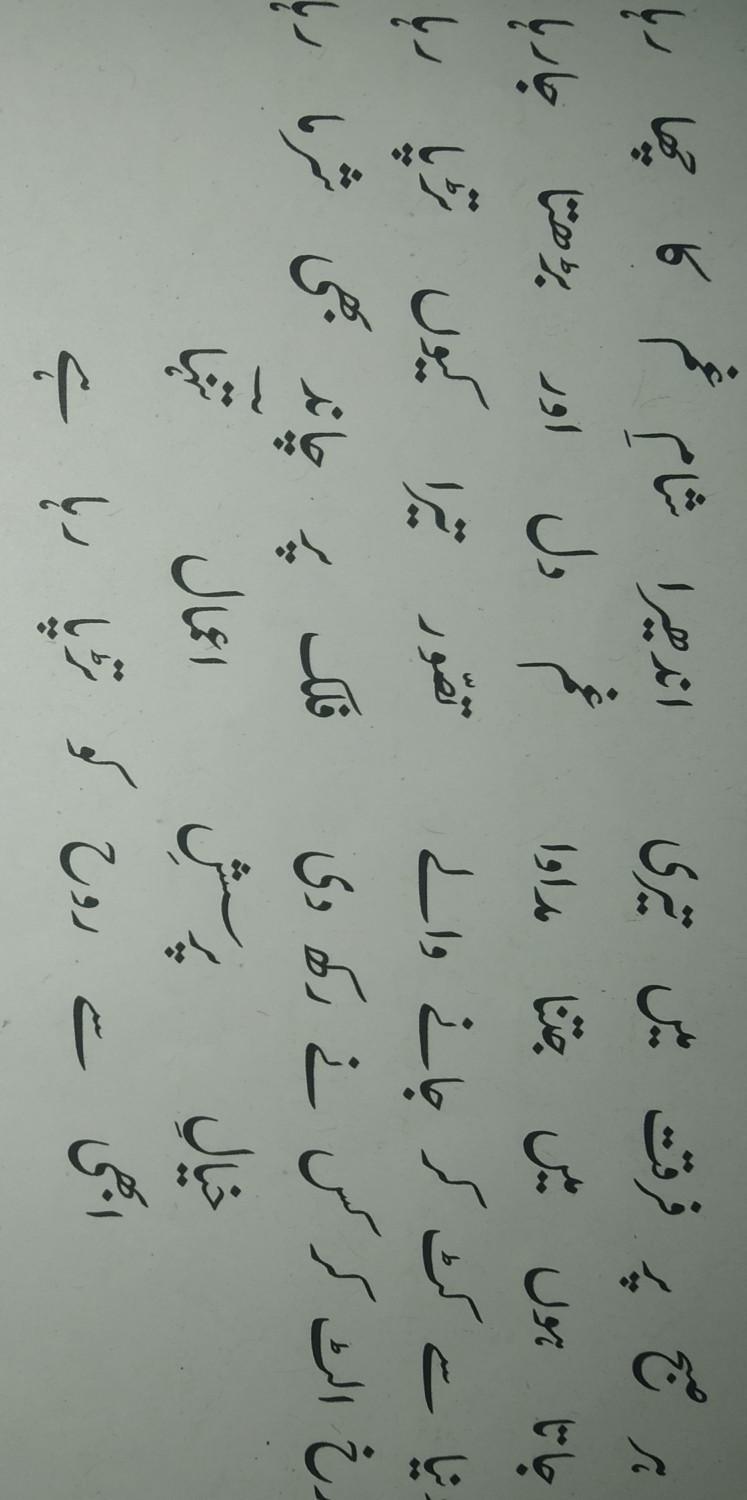 ہر صبح پر فرقت میں تیری اندھیرا شامِ غم کا چھا رہا
جاتا ہوں میں جتنا مداوا غم دل اور بڑھتا جا رہا
دنیا سے کٹ کر جانے والے تصّور تیرا کیوں تڑپا رہا
رخ الٹ کر کس نے رکھ دی فلک پر چاند بھی شرما رہا
خیالِ پرسشِ اعمال تنہا
ابھی سے روح کو تڑپا رہا ہے